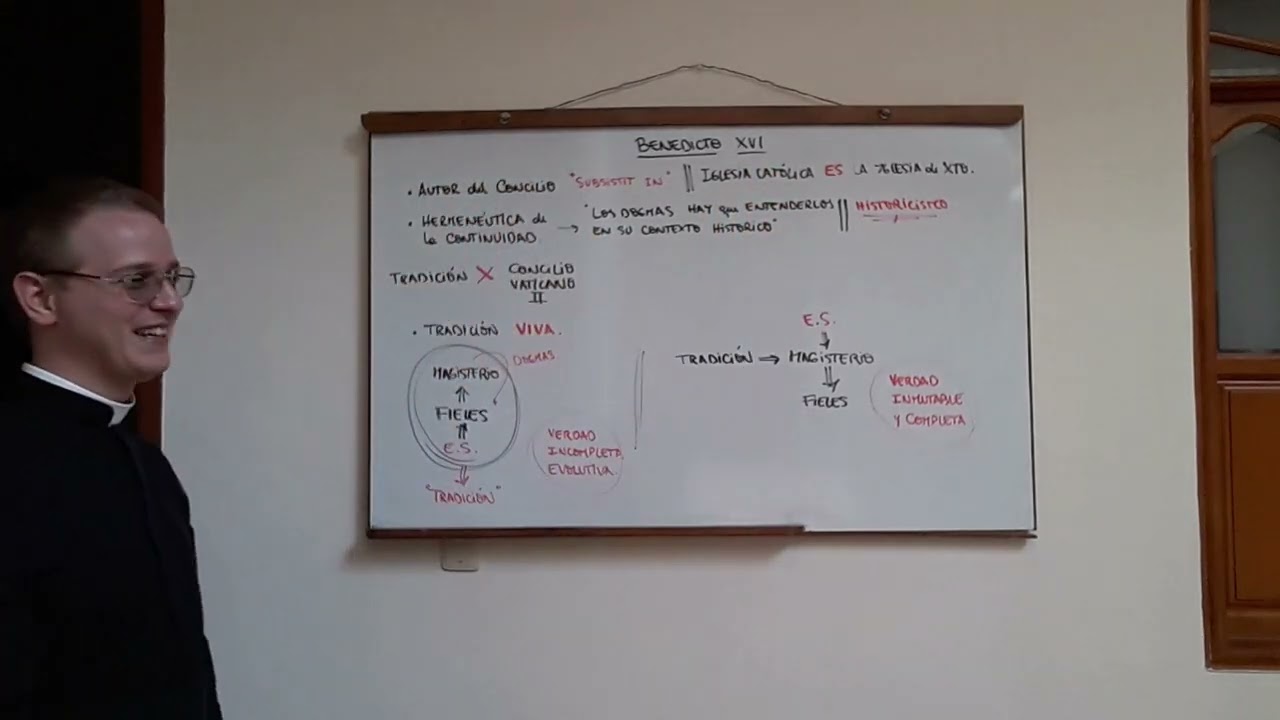 BENEDICTO XVI
• AUTOR del CONCILIO "SUBSISTIT IN" || IGLESIA CATÓLICA ES LA IGLESIA de XTO.
• HERMENÉUTICA de → "LOS DOGMAS HAY que ENTENDERLOS || HISTORICISTO
la CONTINUIDAD EN SU CONTEXTO HISTÓRICO"
TRADICIÓN X CONCILIO
VATICANO
II
• TRADICIÓN VIVA.
DOGMAS
MAGISTERIO
FIELES
E.S.
"TRADICIÓN"
VERDAD
INCOMPLETA
EVOLUTIVA.
E.S.
TRADICIÓN ⇒ MAGISTERIO
FIELES
VERDAD
INMUTABLE
Y COMPLETA